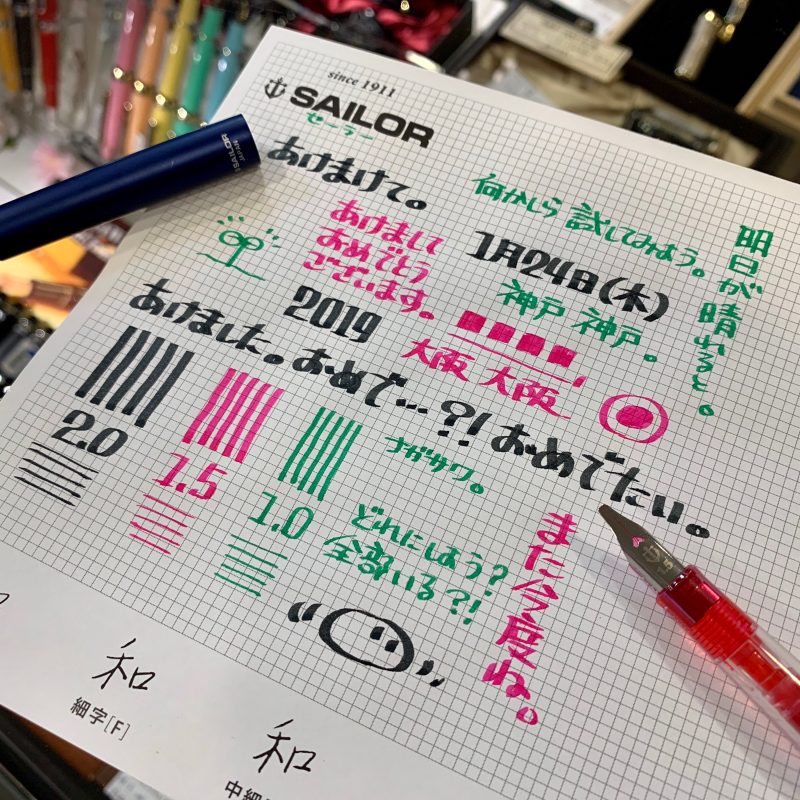 since 1911
SAILOR
セーラー
SAILOR
JAPAN
あけまけて。
何かしら 試してみよう。
明日が晴れると。
あけまして
おめでとう
ございます。
1月24日(木)
神戸 神戸。
2019
大阪 大阪
あけました。おめで…?! おめでたい。
2.0
1.5
1.0
ナガサワ。
どれにしよう?
全部いる?!
また今度ね。
和
細字[F]
和